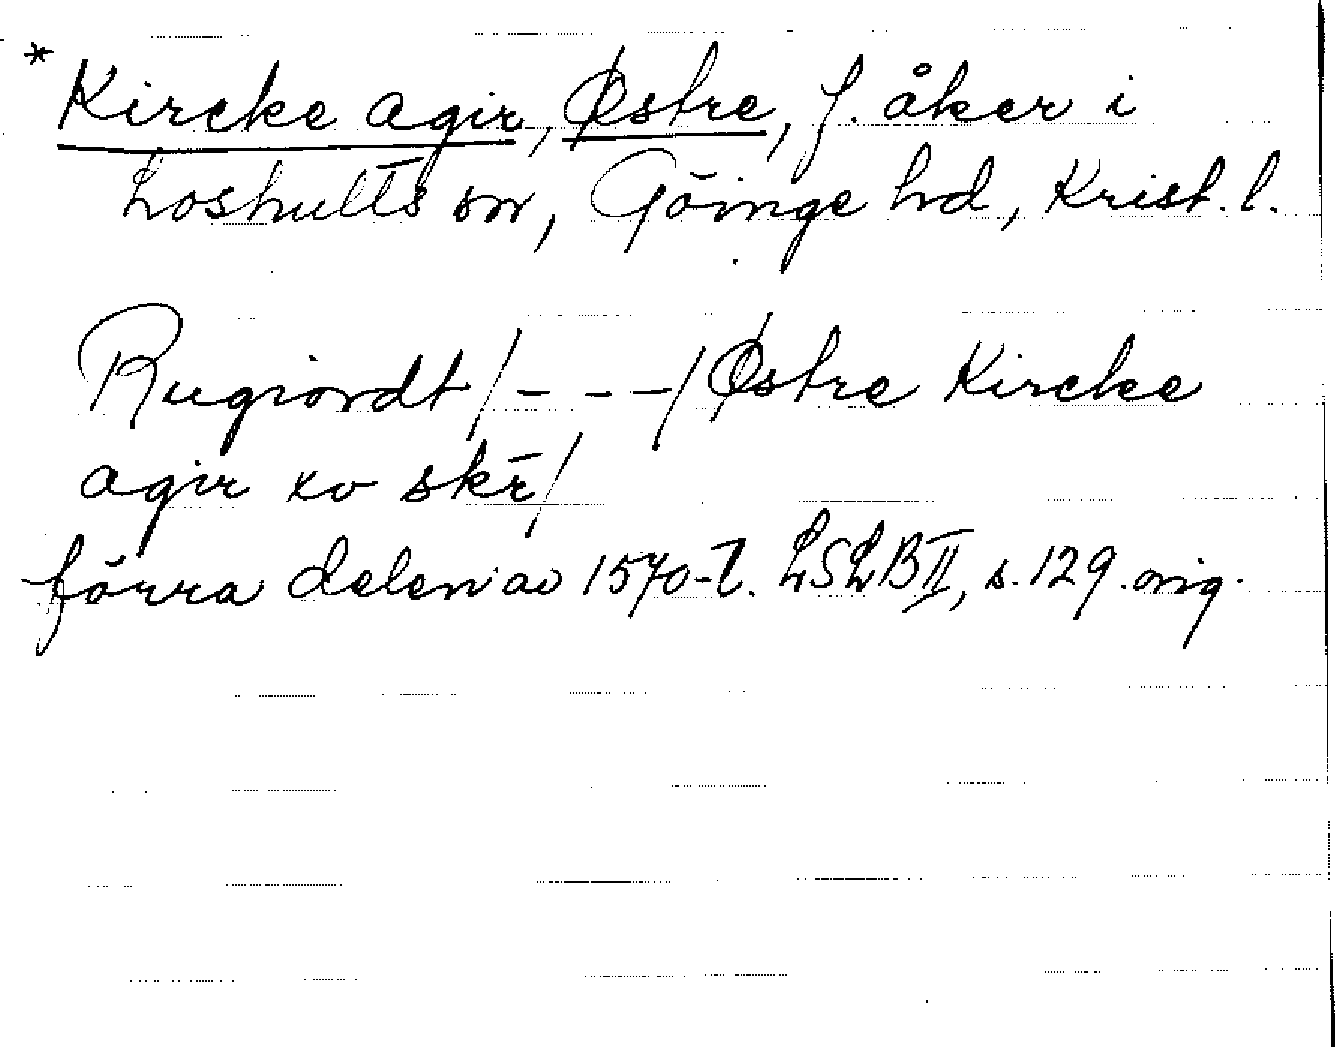 * Kircke agir, Østre, f. åker i
Loshults sn, Göinge hd, Krist. l.
Rugiordt /- - -/ Østre Kircke
agir xv skr̄/
förra delen av 1570-t. LSLB II, s. 129. orig.